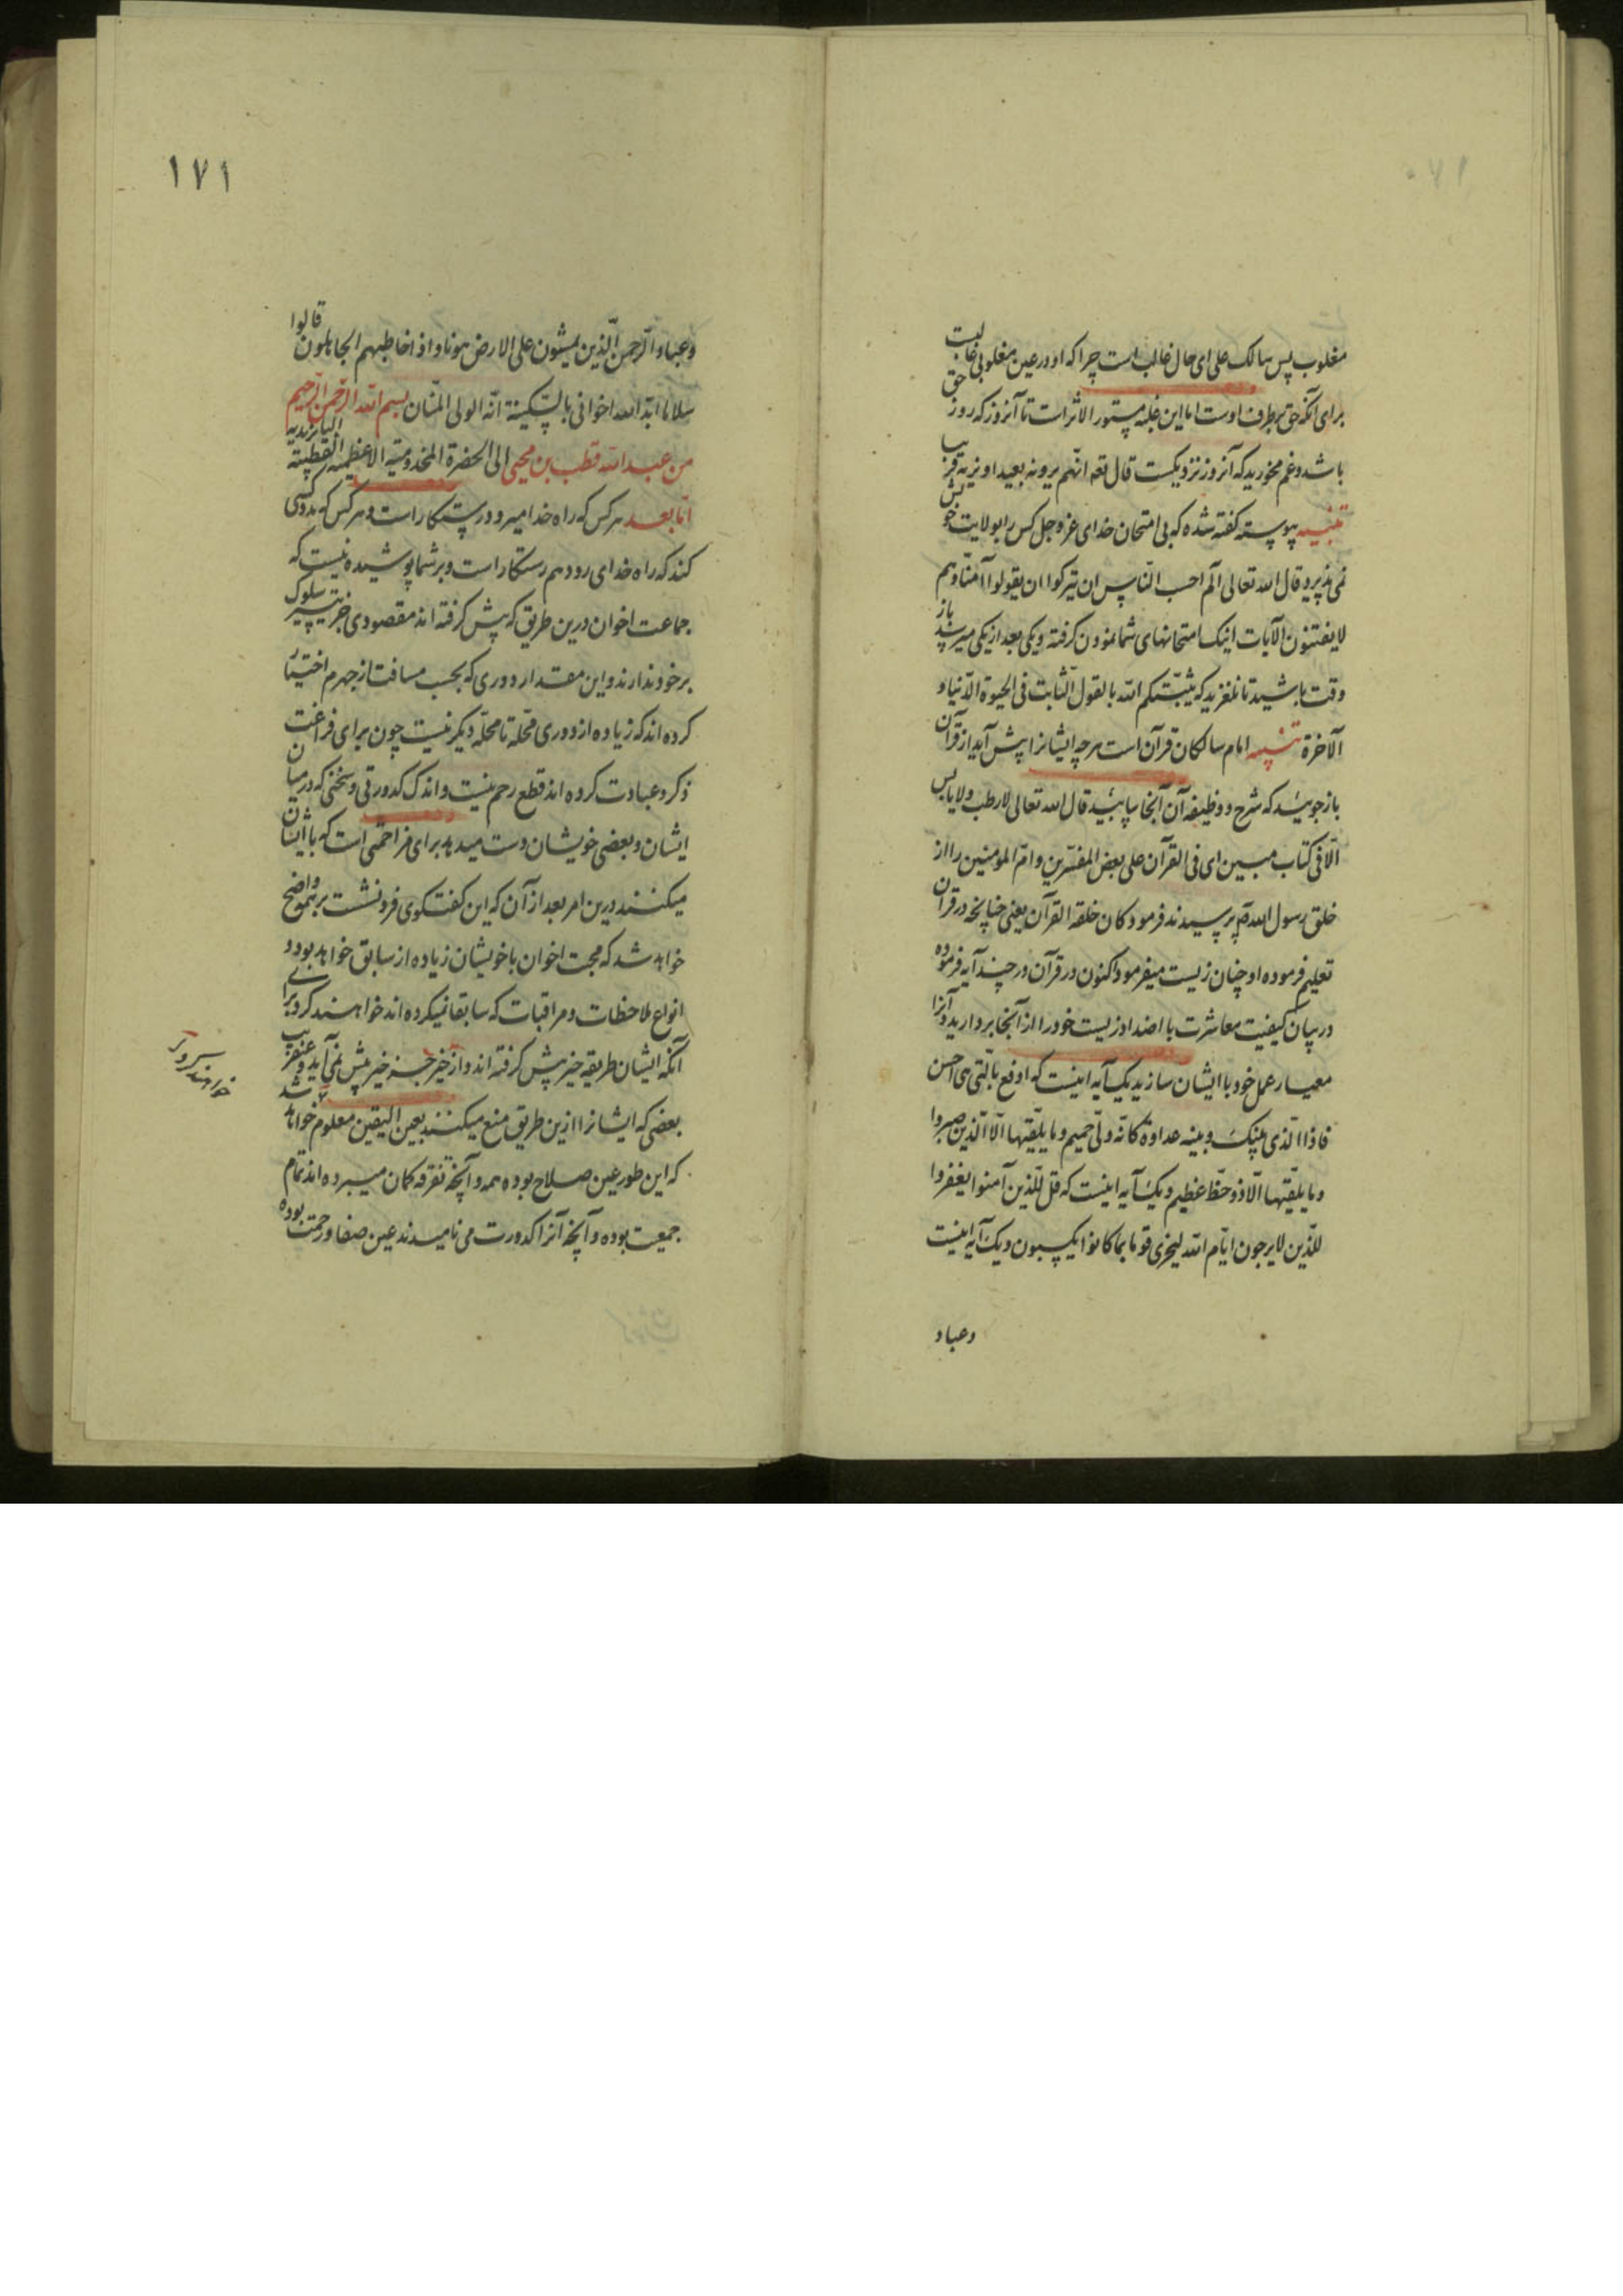 مغلوب پس سالک علی ای حال غالب است چرا که او در عین مغلوبی غالبست
برای آنکه حق بطرف اوست اما این غلبه مستور الاثر است تا آنروز که روز حق
باشد و غم مخورید که آنروز نزدیکست قال تعه انهم یرونه بعیدا و نریه قریبا
تنبیه پیوسته کفته شده که بی امتحان خدای عز و جل کس را بولایت خویش
نمی پذیرد قال الله تعالی الم احسب الناس ان یترکوا ان یقولوا آمنا و هم
لا یفتنون الآیات اینک امتحانهای شما نمودن کرفته و یکی بعد از یکی میرسد باز
وقت باشید تا نلغزید که یثبتکم الله بالقول الثابت فی الحیوة الدنیا و
الآخرة تنبیه امام سالکان قرآن است هر چه ایشانرا پیش آید از قرآن
باز جویند که شرح و وظیفه آن آنجا یابند قال الله تعالی لا رطب ولا یابس
الا فی کتاب مبین ای فی القرآن علی بعض المفسرین و ام المومنین را از
خلق رسول الله صم پرسیدند فرمود کان خلقه القرآن یعنی چنانچه در قرآن
تعلیم فرموده او چنان زیست میفرمود اکنون در قرآن در چند آیه فرموده
در بیان کیفیت معاشرت با اضداد زیست خود را از آنجا بردارید و آنرا
معیار عمل خود با ایشان سازید یک آیه اینست که ادفع بالتی هی احسن
فاذا الذی بینک و بینه عداوة کانه ولی حمیم و ما یلقیها الا الذین صبروا
و ما یلقیها الا ذو حظ عظیم و یک آیه اینست که قل للذین آمنوا یغفروا
للذین لا یرجون ایام الله لیجزی قوما بما کانوا یکسبون و یک آیه اینست
وعباد
۱۷۱
وعباد الرحمن الذین یمشون علی الارض هونا و اذا خاطبهم الجاهلون قالوا
سلاما ایدالله اخوانی بالسکینة انه الولی المنان بسم الله الرحمن الرحیم
من عبدالله قطب بن محیی الی الحضرة المخدومیة الاعظمیه القطبیته
اما بعد هر کس که راه خدا میرود رستکار است و هر کس که مدد کسی
کند که راه خدای رود هم رستکار است و بر شما پوشیده نیست که
جماعت اخوان درین طریق که پیش کرفته اند مقصودی جز تیسیر سلوک
بر خود ندارند و این مقدار دوری که بحسب مسافت از جهرم اختیار
کرده اند که زیاده از دوری محله تا محله دیکر نیست چون برای فراغت
ذکر و عبادت کرده اند قطع رحم نیست و اندک کدورتی و سخنی که در میان
ایشان و بعضی خویشان دست میدهد برای مزاحمتی است که با ایشان
میکنند درین امر بعد از آن که این کفتکوی فرو نشست بر شما واضح
خواهد شد که محبت اخوان با خویشان زیاده از سابق خواهد بود و
انواع ملاحظات و مراقبات که سابقا نمیکرده اند خواهند کرد برای
آنکه ایشان طریقه خیر پیش کرفته اند و از خیر جز خیر پیش نمی آید و عنقریب
خواهند کرد
بعضی که ایشانرا ازین طریق منع میکنند بعین الیقین معلوم خواهد شد
که این طور عین صلاح بوده همه و آنچه تفرقه کمان میبرده اند تمام
جمعیت بوده و آنچه آنرا کدورت می نامیدند عین صفا و رحمت بوده